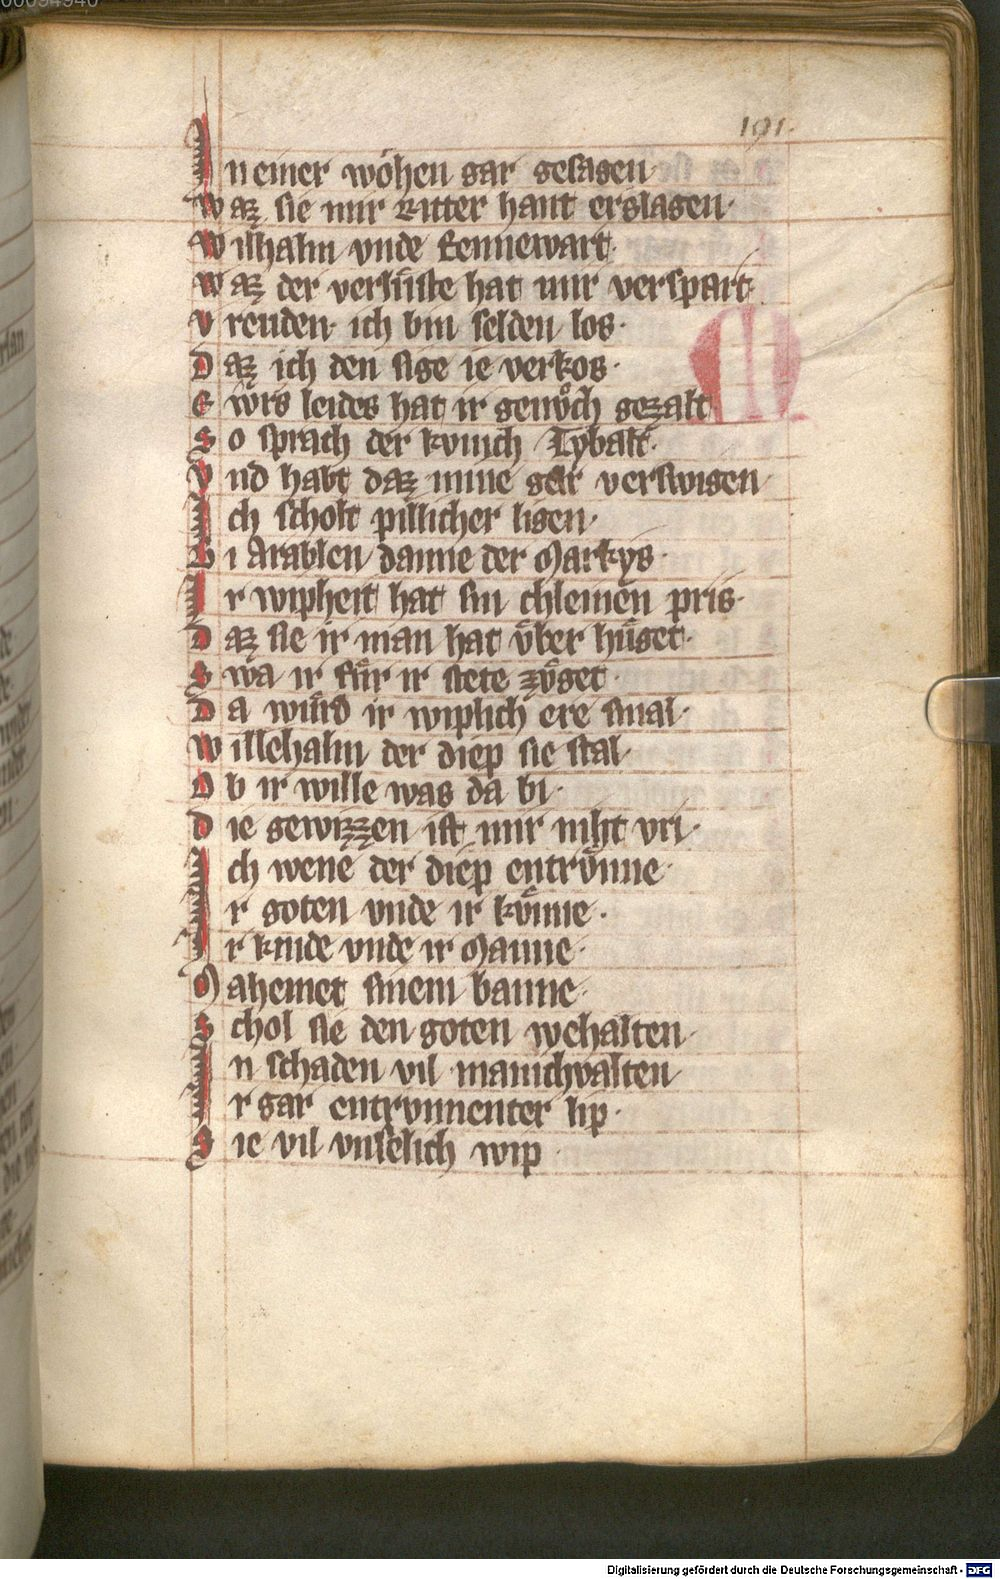 00094940
191.
In einer wöhen gar gesagen
waz sie mir Ritter hant erslagen·
wilhalm vnde Rennewart·
waz der verlüste hat mir verspart
vreuden· ich bin selden los·
Daz ich den sige ie verkos·
Ewͤrs leides hat ir genvͦch gezalt
So sprach der kvnich Tybalt·
Vnd habt daz mine gar verswigen
Ich scholt pillicher ligen·
Bi Arablen danne der Markys·
Ir wipheit hat sin chleinen pris·
Daz sie ir man hat vͤber hüget·
Swa ir für ir stete zvͤget·
Da würd ir wiplich ere smal·
willehalm der diep sie stal·
Ob ir wille was da bi·
die gewizzen ist mir niht vri·
Ich wene der diep entrvͤnne·
Ir goten vnde ir kvͤnne·
Ir kinde vnde ir Manne·
Mahemet sinem banne·
Schol sie den goten wehalten·
In schaden vil manichvalten
Ir gar entrvnnenter lip·
Sie vil vnselich wip
Digitalisierung gefördert durch die Deutsche Forschungsgemeinschaft - DFG